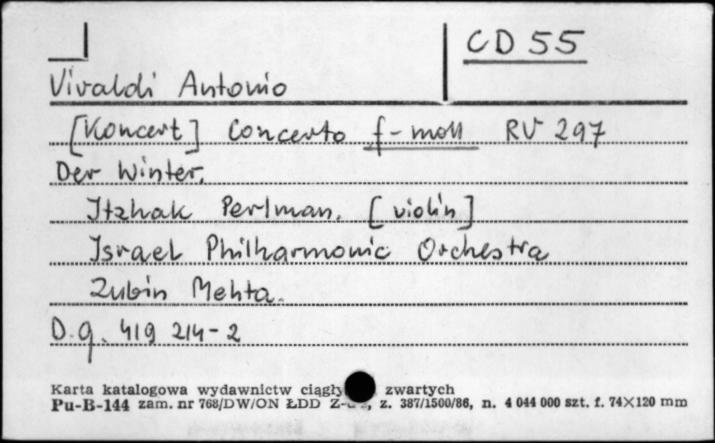 CD 55
Vivaldi Antonio
[Koncert] Concerto f-moll RV 297
Der Winter.
Itzhak Perlman. [violin]
Israel Philharmonic Orchestra
Zubin Mehta.
D.g. 419 214-2
Karta katalogowa wydawnictw zwartych
Pu-B-144 zam. nr 768/DW/ON ŁDD z. 387/1500/86, n. 4 044 000 szt. f. 74×120 mm